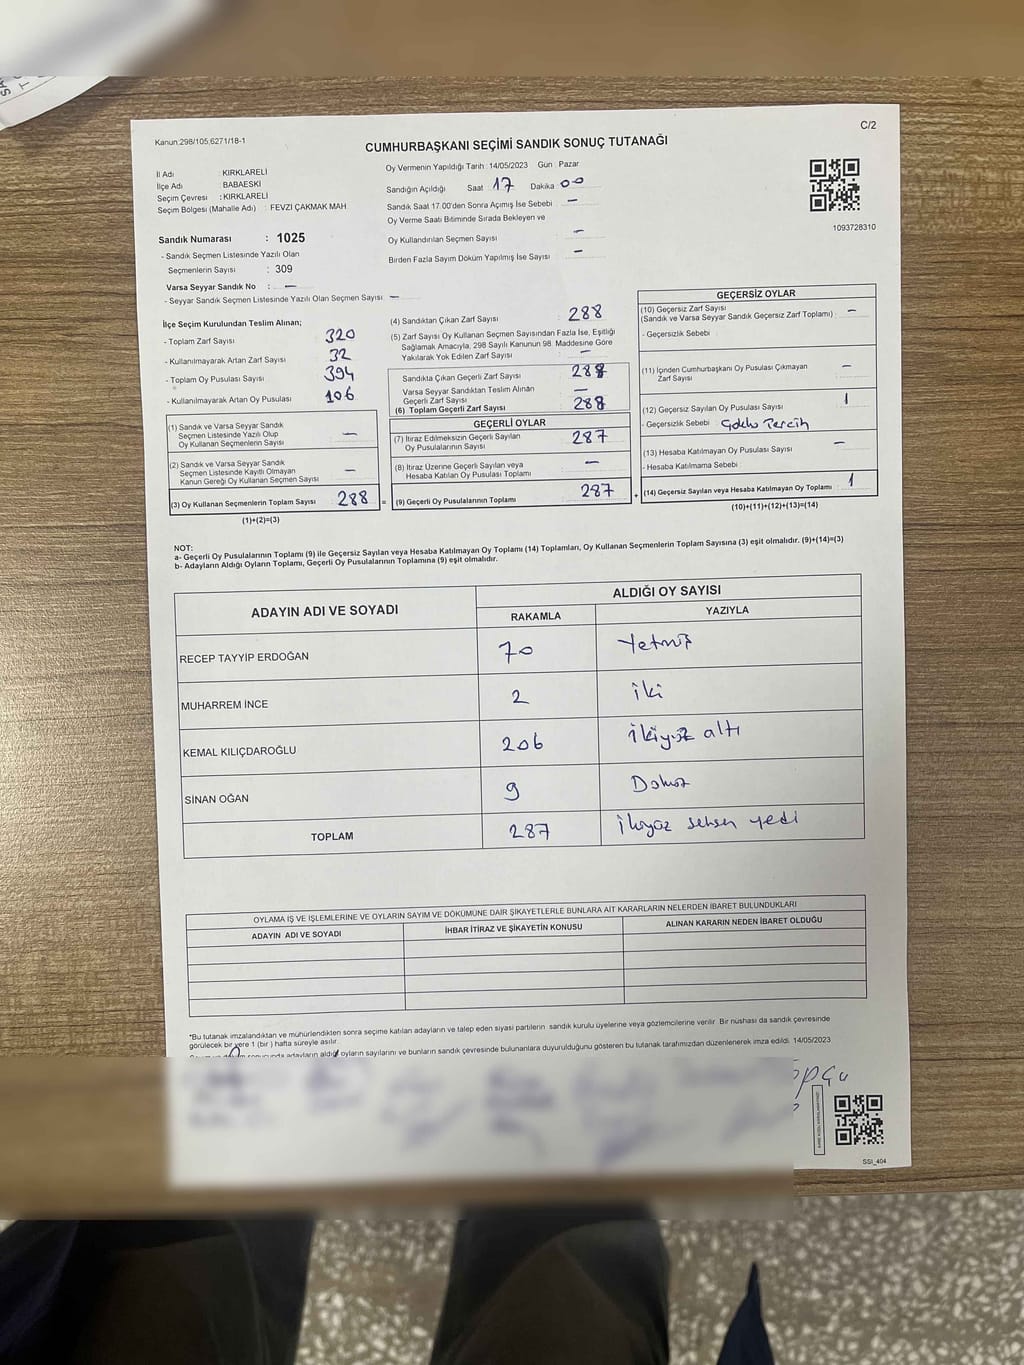 C/2
Kanun:298/105,6271/18-1
CUMHURBAŞKANI SEÇİMİ SANDIK SONUÇ TUTANAĞI
İl Adı : KIRKLARELİ
İlçe Adı : BABAESKİ
Seçim Çevresi : KIRKLARELİ
Seçim Bölgesi (Mahalle Adı) : FEVZI ÇAKMAK MAH
Oy Vermenin Yapıldığı Tarih :14/05/2023 Gün : Pazar
Sandığın Açıldığı Saat 17 Dakika 00
Sandık Saat 17.00'den Sonra Açımış İse Sebebi —
Oy Verme Saati Bitiminde Sırada Bekleyen ve
Oy Kullandırılan Seçmen Sayısı —
Birden Fazla Sayım Döküm Yapılmış İse Sayısı —
1093728310
Sandık Numarası : 1025
- Sandık Seçmen Listesinde Yazılı Olan
Seçmenlerin Sayısı : 309
Varsa Seyyar Sandık No : —
- Seyyar Sandık Seçmen Listesinde Yazılı Olan Seçmen Sayısı : —
İlçe Seçim Kurulundan Teslim Alınan;
- Toplam Zarf Sayısı 320
- Kullanılmayarak Artan Zarf Sayısı 32
- Toplam Oy Pusulası Sayısı 394
- Kullanılmayarak Artan Oy Pusulası 106
(1) Sandık ve Varsa Seyyar Sandık
Seçmen Listesinde Yazılı Olup
Oy Kullanan Seçmenlerin Sayısı —
(2) Sandık ve Varsa Seyyar Sandık
Seçmen Listesinde Kayıtlı Olmayan
Kanun Gereği Oy Kullanan Seçmen Sayısı —
(3) Oy Kullanan Seçmenlerin Toplam Sayısı 288
(1)+(2)=(3)
(4) Sandıktan Çıkan Zarf Sayısı 288
(5) Zarf Sayısı Oy Kullanan Seçmen Sayısından Fazla İse, Eşitliği
Sağlamak Amacıyla, 298 Sayılı Kanunun 98. Maddesine Göre
Yakılarak Yok Edilen Zarf Sayısı —
Sandıkta Çıkan Geçerli Zarf Sayısı 288
Varsa Seyyar Sandıktan Teslim Alınan
Geçerli Zarf Sayısı —
(6) Toplam Geçerli Zarf Sayısı 288
GEÇERLİ OYLAR
(7) İtiraz Edilmeksizin Geçerli Sayılan
Oy Pusulası Sayısı 287
(8) İtiraz Üzerine Geçerli Sayılan veya
Hesaba Katılan Oy Pusulası Toplamı —
= (9) Geçerli Oy Pusulalarının Toplamı 287 +
GEÇERSİZ OYLAR
(10) Geçersiz Zarf Sayısı
(Sandık ve Varsa Seyyar Sandık Geçersiz Zarf Toplamı) : —
- Geçersizlik Sebebi
(11) İçinden Cumhurbaşkanı Oy Pusulası Çıkmayan
Zarf Sayısı —
(12) Geçersiz Sayılan Oy Pusulası Sayısı 1
- Geçersizlik Sebebi Tercih
(13) Hesaba Katılmayan Oy Pusulası Sayısı —
- Hesaba Katılmama Sebebi
(14) Geçersiz Sayılan veya Hesaba Katılmayan Oy Toplamı 1
(10)+(11)+(12)+(13)=(14)
NOT:
a- Geçerli Oy Pusulalarının Toplamı (9) ile Geçersiz Sayılan veya Hesaba Katılmayan Oy Toplamı (14) Toplamları, Oy Kullanan Seçmenlerin Toplam Sayısına (3) eşit olmalıdır. (9)+(14)=(3)
b- Adayların Aldığı Oyların Toplamı, Geçerli Oy Pusulalarının Toplamına (9) eşit olmalıdır.
ADAYIN ADI VE SOYADI ALDIĞI OY SAYISI
RAKAMLA YAZIYLA
RECEP TAYYİP ERDOĞAN 70 Yetmiş
MUHARREM İNCE 2 İki
KEMAL KILIÇDAROĞLU 206 İkiyüz altı
SİNAN OĞAN 9 Dokuz
TOPLAM 287 İkiyüz seksen yedi
OYLAMA İŞ VE İŞLEMLERİNE VE OYLARIN SAYIM VE DÖKÜMÜNE DAİR ŞİKAYETLERLE BUNLARA AİT KARARLARIN NELERDEN İBARET BULUNDUKLARI
ADAYIN ADI VE SOYADI İHBAR İTİRAZ VE ŞİKAYETİN KONUSU ALINAN KARARIN NEDEN İBARET OLDUĞU
*Bu tutanak imzalandıktan ve mühürlendikten sonra seçime katılan adayların ve talep eden siyasi partilerin sandık kurulu üyelerine veya gözlemcilerine verilir. Bir nüshası da sandık çevresinde
görülecek bir yere 1 (bir ) hafta süreyle asılır.
adayların aldığı oyların sayılarını ve bunların sandık çevresinde bulunanlara duyurulduğunu gösteren bu tutanak tarafımızdan düzenlenerek imza edildi. 14/05/2023
SSI_404